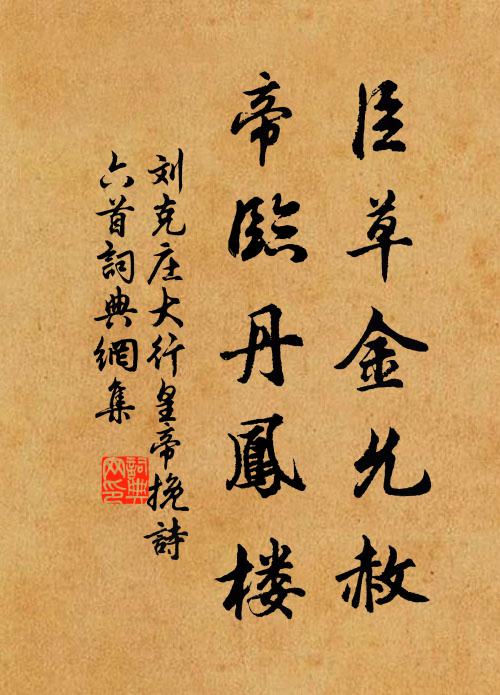 臣草金允赦
帝臨丹鳳楼
刘克庄大行皇帝挽詩
六首詞典網集
詞典
网印